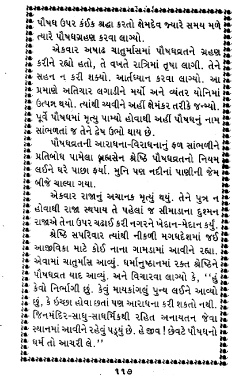 પૌષધ ઉપર કંઈક શ્રદ્ધા કરતો ક્ષેમદેવ જ્યારે સમય મળે
ત્યારે પૌષધગ્રહણ કરવા લાગ્યો.
એકવાર અષાઢ ચાતુર્માસમાં પૌષધવ્રતને ગ્રહણ
કરીને રહ્યો હતો, તે વખતે રાત્રિમાં તૃષા લાગી. તેને
સહન ન કરી શક્યો. આર્તધ્યાન કરવા લાગ્યો. આ
પ્રમાણે અતિચાર લગાડીને મર્યો અને વ્યંતર યોનિમાં
ઉત્પન્ન થયો. ત્યાંથી ચ્યવીને અહીં ક્ષેમંકર તરીકે જન્મ્યો.
પૂર્વે પૌષધમાં મૃત્યુ પામ્યો હોવાથી અહીં પૌષધનું નામ
સાંભળતાં જ તેને દ્વેષ ઉભો થાય છે.
પૌષધવ્રતની આરાધના-વિરાધનાનું ફળ સાંભળીને
પ્રતિબોધ પામેલા બ્રહ્મસેન શ્રેષ્ઠિ પૌષધવ્રતનો નિયમ
લઈને ઘરે પાછા ફર્યા. મુનિ પણ નદીના પાણીની જેમ
બીજે ચાલ્યા ગયા.
એકવાર રાજાનું અચાનક મૃત્યુ થયું. તેને પુત્ર ન
હોવાથી રાજા સ્થપાય તે પહેલાં જ સીમાડાના દુશ્મન
રાજાએ તેના ઉપર ચઢાઈ કરી નગરને મેદાન-મેદાન કર્યું.
શ્રેષ્ઠિ સપરિવાર ત્યાંથી નીકળી મગધદેશમાં જઈ
આજીવિકા માટે કોઈ નાના ગામડામાં આવીને રહ્યા.
એવામાં ચાતુર્માસ આવ્યું. ધર્માનુષ્ઠાનમાં રક્ત શ્રેષ્ઠિને
પૌષધવ્રત યાદ આવ્યું. અને વિચારવા લાગ્યો કે, "હું
કેવો નિર્ભાગી છું. કેવું માયકાંગલું પુન્ય લઈને આવ્યો
છું, કે ઇચ્છા હોવા છતાં પણ આરાધના કરી શકતો નથી.
જિનમંદિર-સાધુ-સાધર્મિકથી રહિત અનાયતન જેવા
સ્થાનમાં આવીને રહેવું પડ્યું છે. હે જીવ ! છેવટે પૌષધનો
ધર્મ તો આચરી લે."
૧૧૭